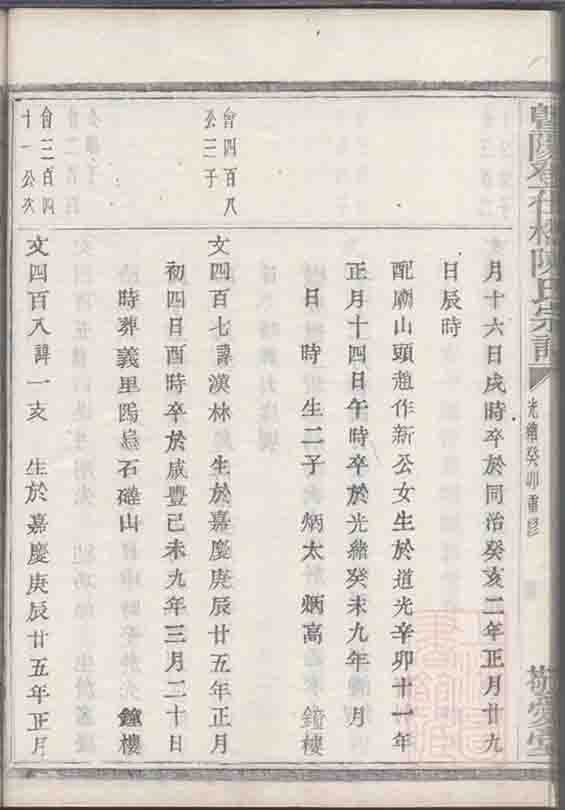 陳氏宗譜
光緒癸卯重修
月十六日戌時卒於同治癸亥二年正月廿九
日辰時
配廟山頭趙作新公女生於道光辛卯十一年
正月十四日午時卒於光緒癸未九年 月
日 時 生二子 炳太 炳高 鐘樓
會四百八
公三子
文四百七諱漢林 生於嘉慶庚辰廿五年正月
初四日酉時卒於咸豐己未九年三月二十日
時葬義里隖扆石磋山 鐘樓
會三百四
十一公次
文四百八諱一亥 生於嘉慶庚辰廿五年正月